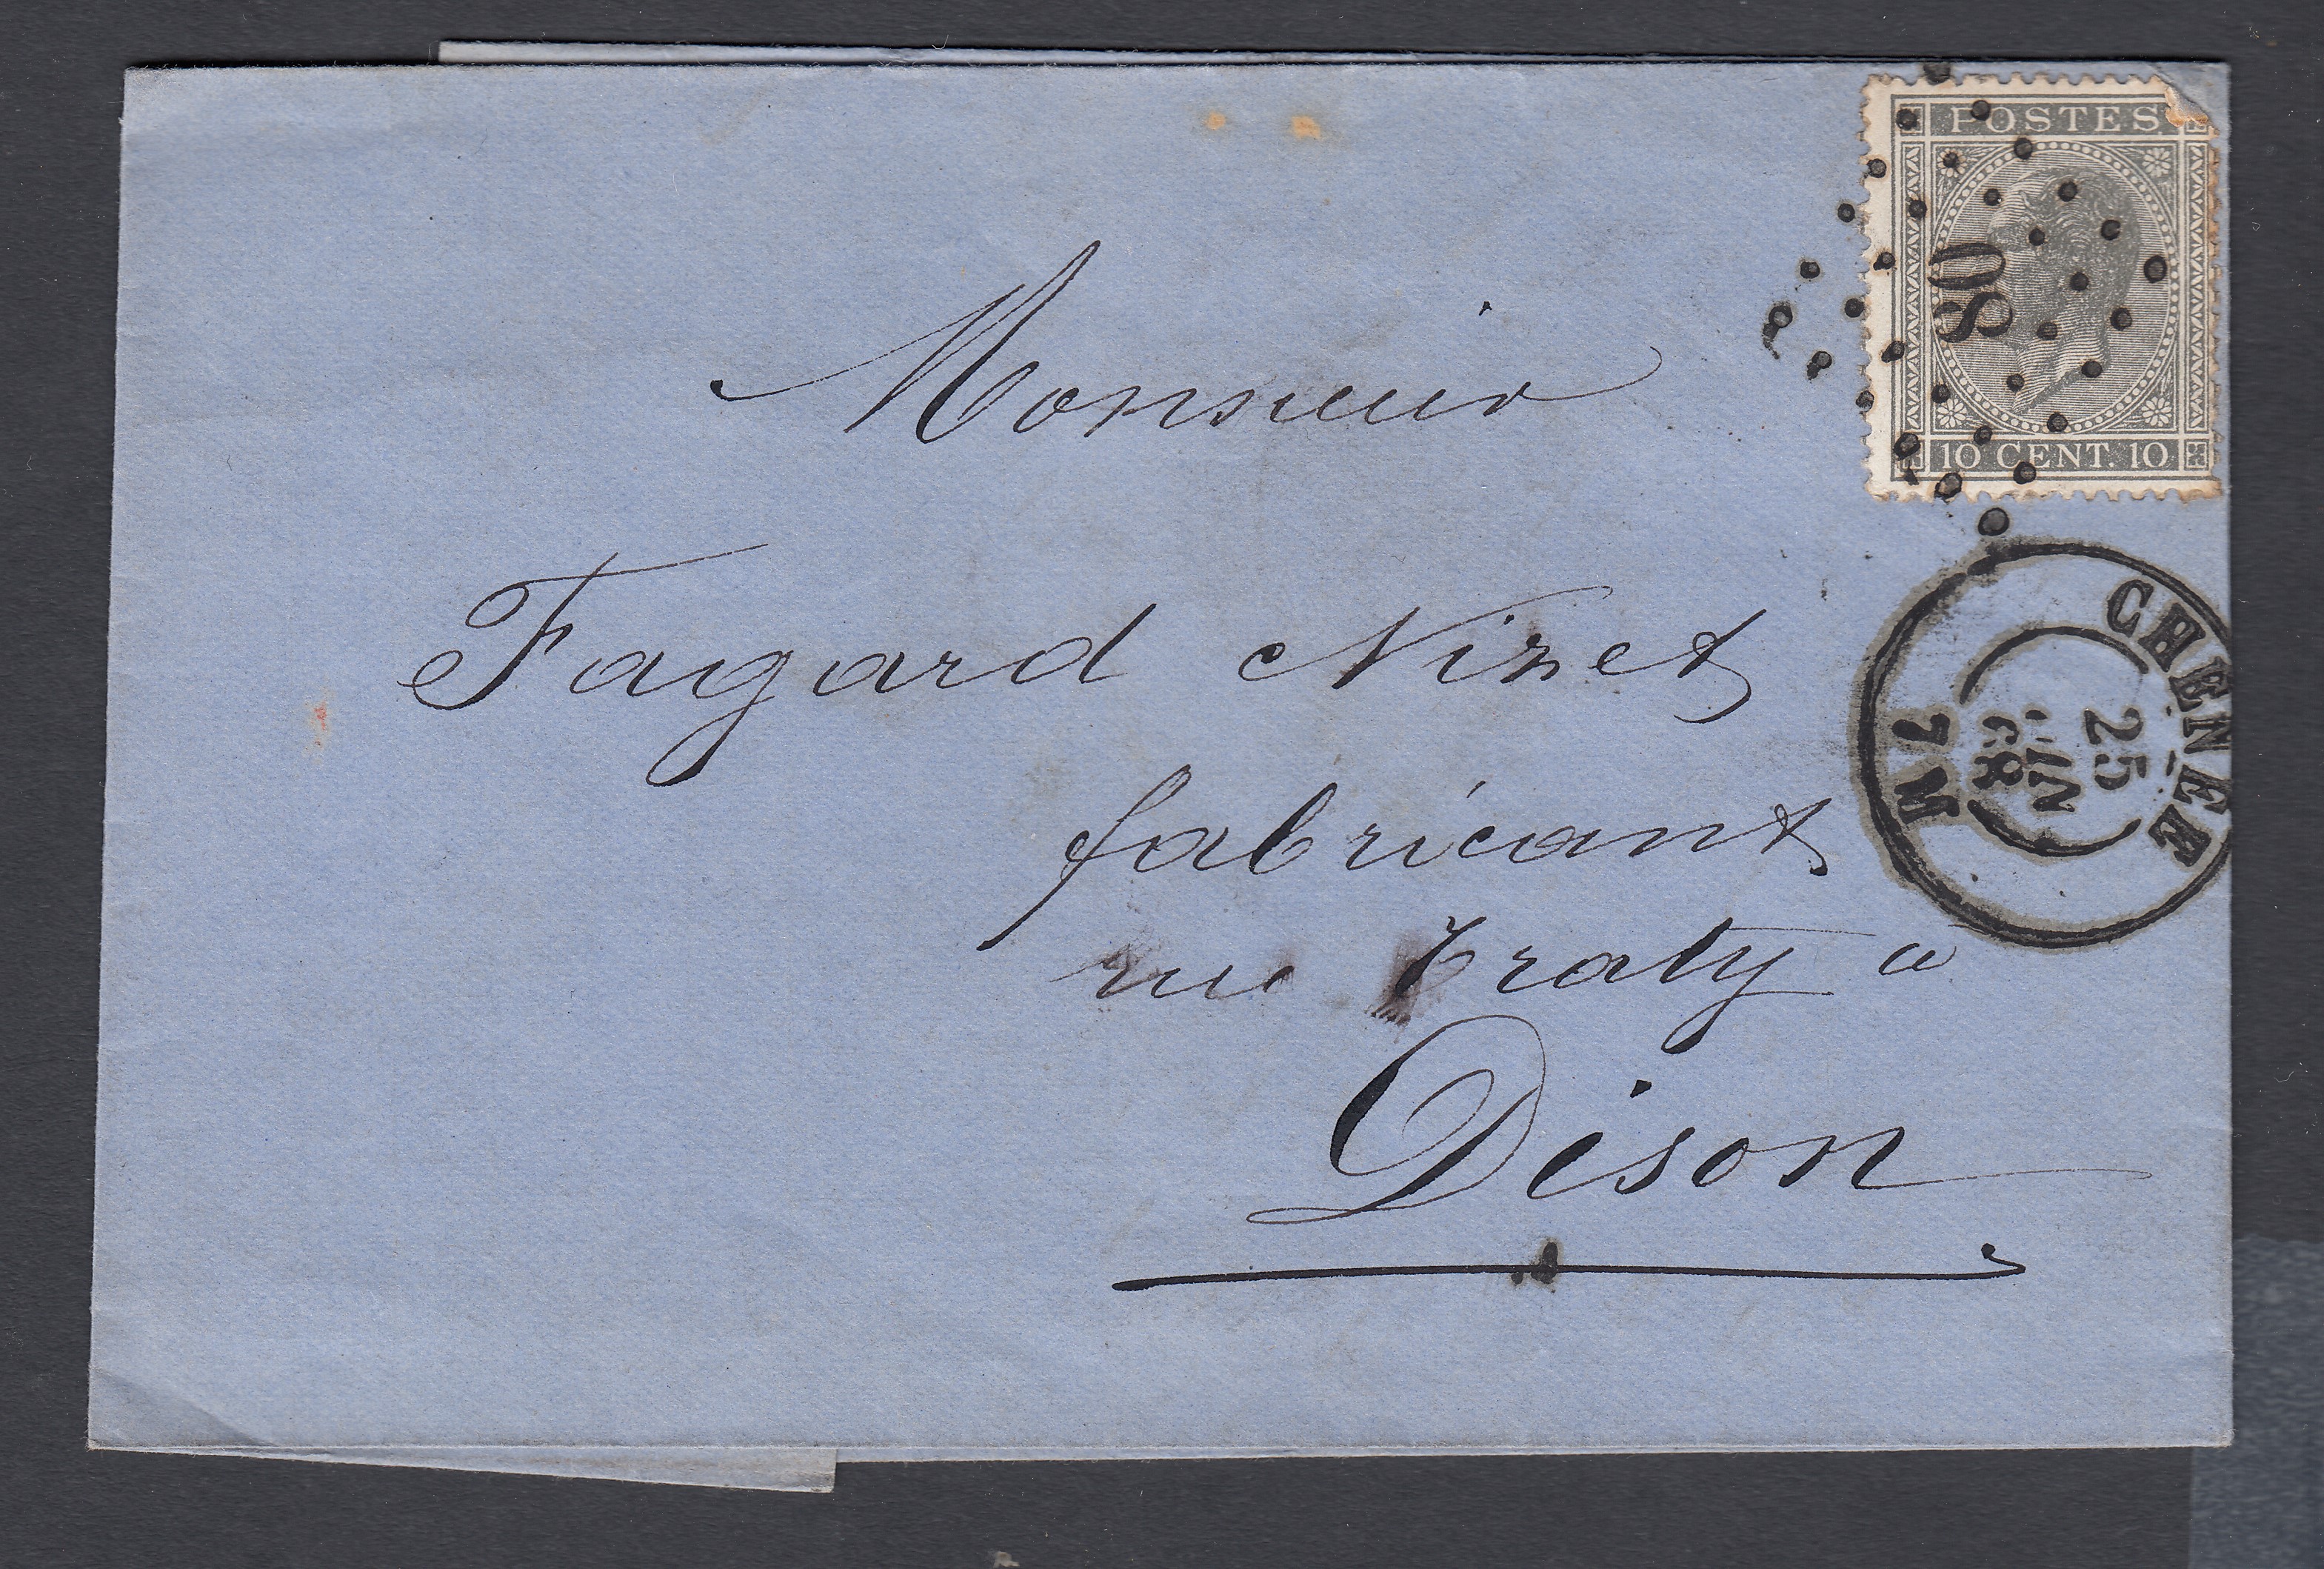 POSTES
80
10 CENT. 10
CHÊNÉE
25
JUIN
68
7 M
Monsieur
Fagard Nizet
fabricant
rue Traty a
Dison